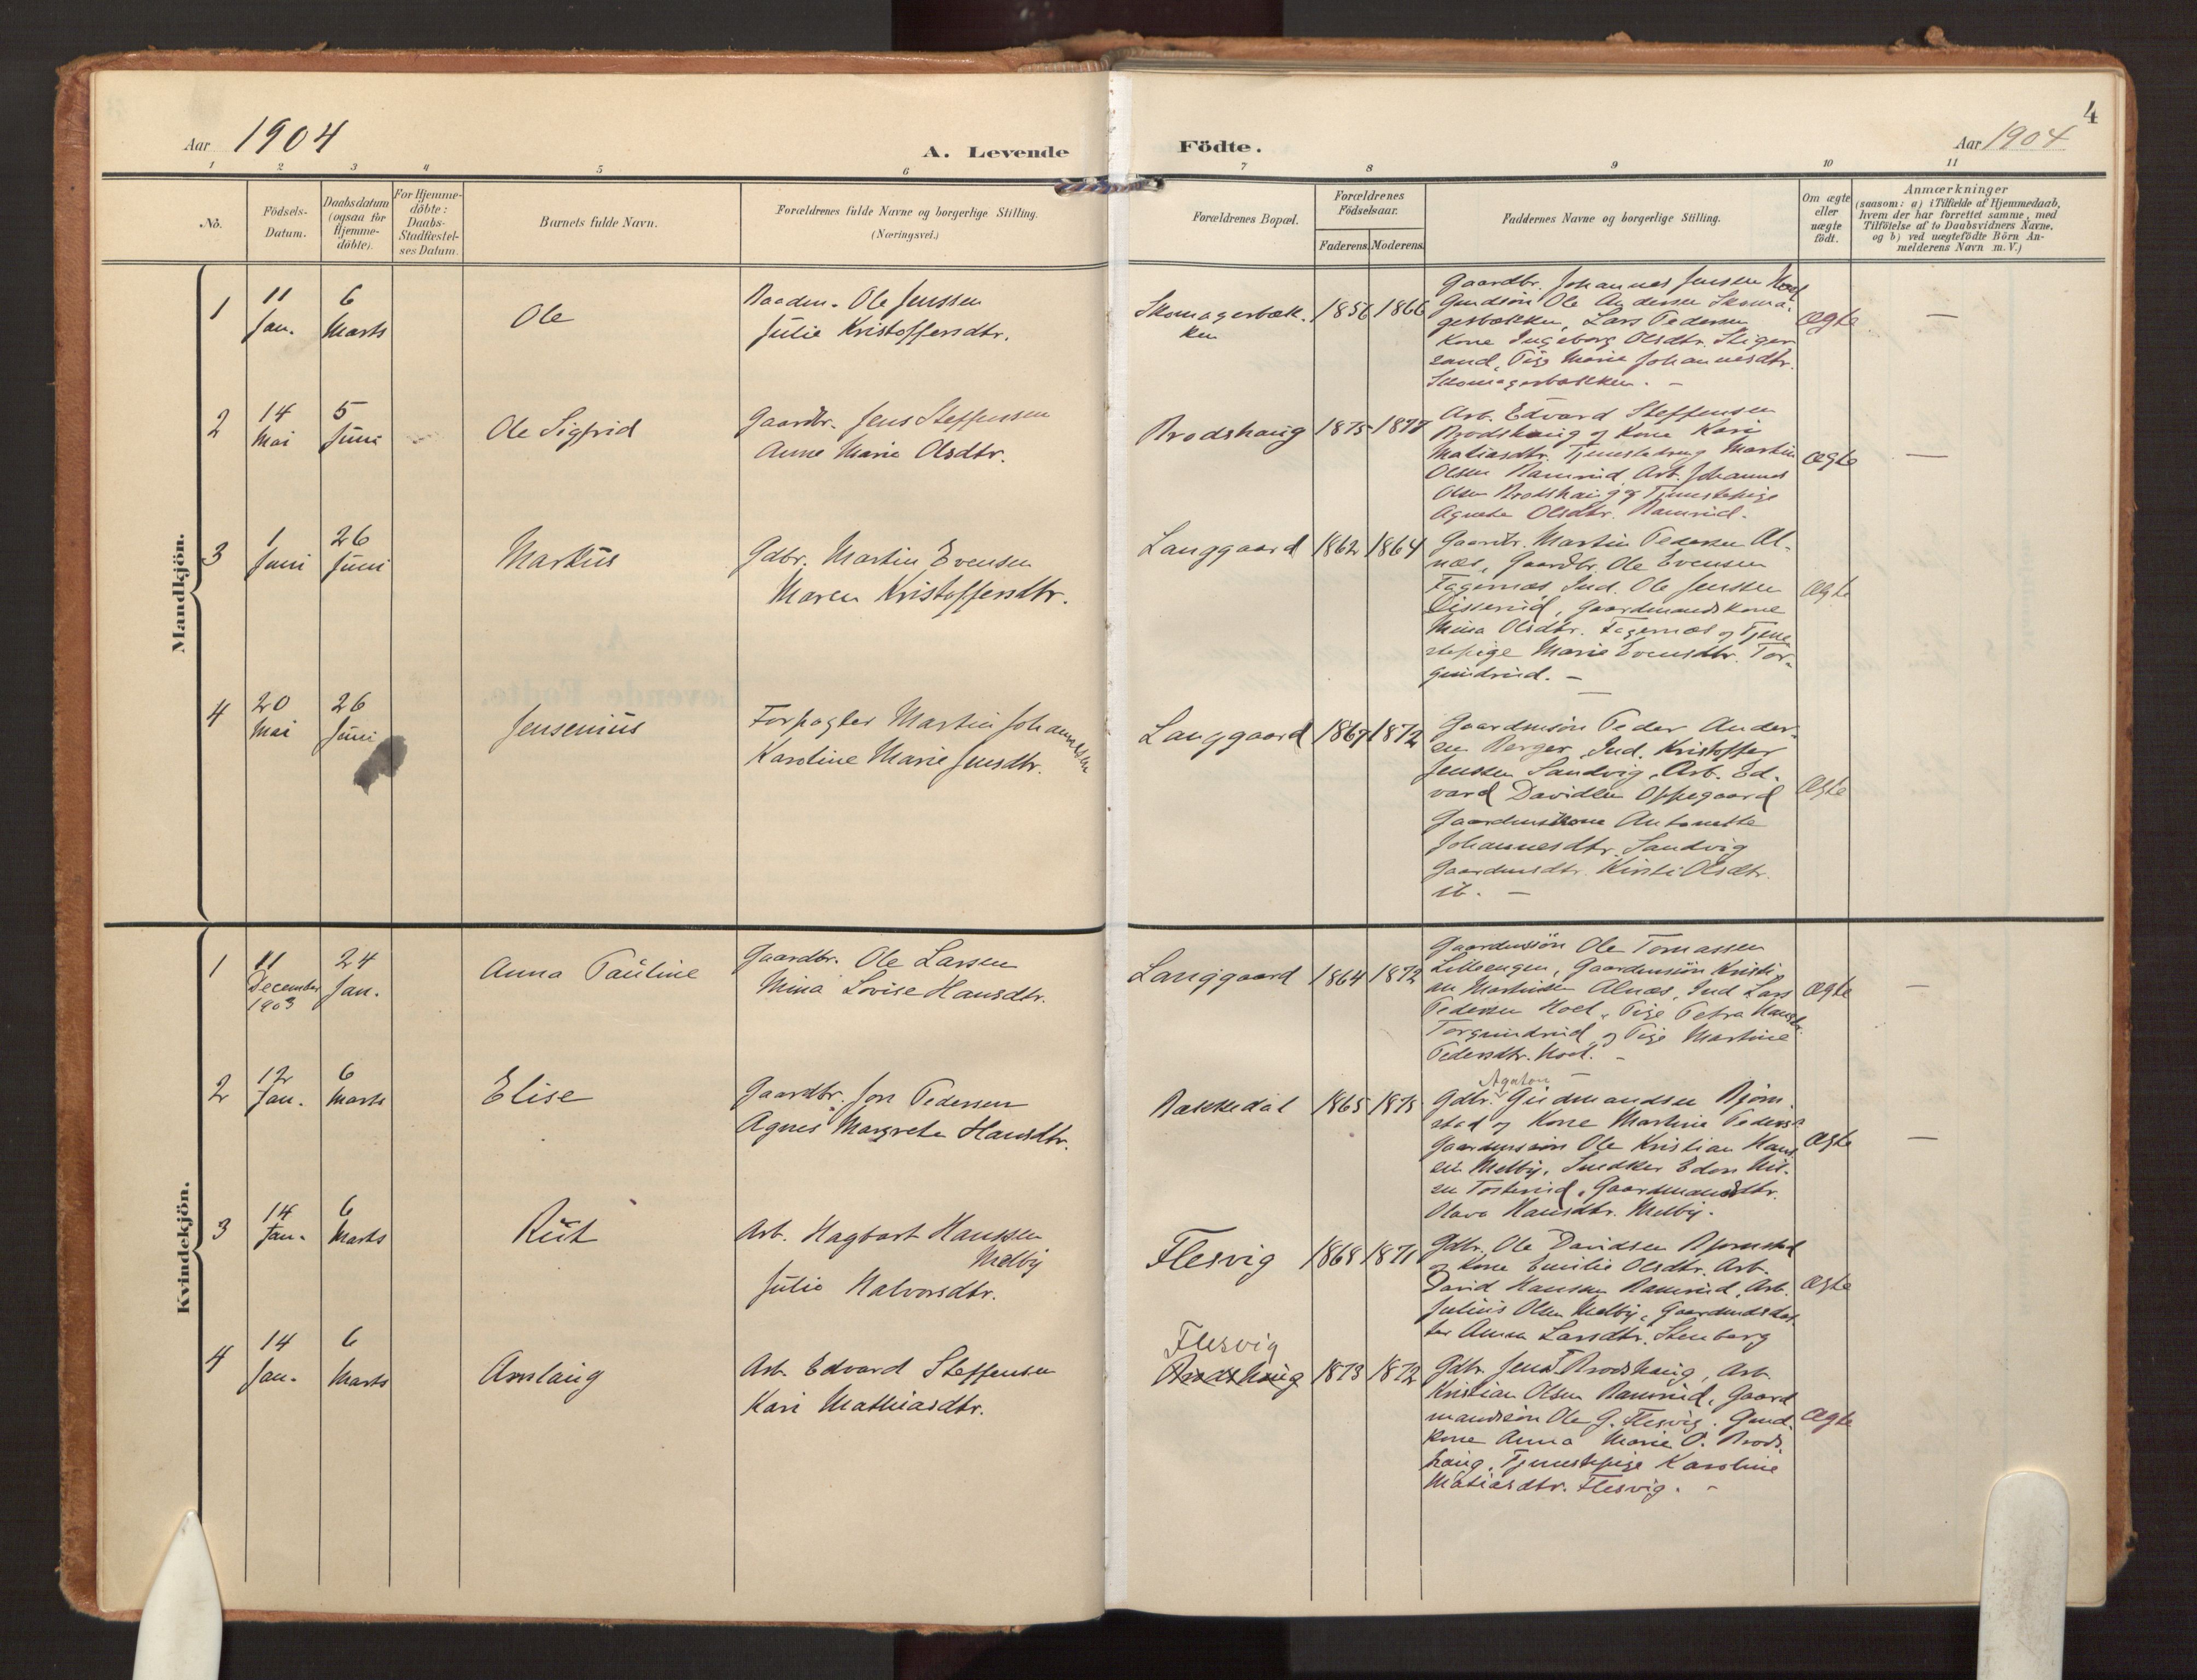 4
Aar 1904
A. Levende
Födte.
Aar 1904
1 2 3 4 5 6 7 8 9 10 11
Nô.
Födsels-
Datum.
Daabsdatum
(ogsaa for
Hjemme-
döbte).
For Hjemme-
döbte:
Daabs-
Stadfæstel-
ses Datum.
Barnets fulde Navn.
Forældrenes fulde Navne og borgerlige Stilling.
(Næringsvei.)
Forældrenes Bopæl.
Forældrenes
Födselsaar.
Faderens. Moderens.
Faddernes Navne og borgerlige Stilling.
Om ægte
eller
uægte
födt.
Anmærkninger
(saasom: a) i Tilfælde af Hjemmedaab,
hvem der har forrettet samme, med
Tilföielse af to Daabsvidners Navne,
og b) ved uægtefödte Börn An-
melderens Navn m. V.)
Mandkjön.
1
11
Jan.
6
Marts
Ole
Ole Jenssen
Julie Kristoffersdtr.
Skomagerbæk-
ken
1856 1866
Gaardbr. Johannes Jenssen Hoel
Gmdsön Ole Andersen Skoma-
gerbækken, Lars Pedersen
Kone Ingeborg Olsdtr. Stiger
sand, Pige Marie Johannesdtr.
Skomagerbækken. -
ægte
—
2
14
Mai
5
Juni
Ole Sigfrid
Gaardbr. Jens Steffensen
Anne Marie Olsdtr.
Brodshaug
1875 1877
Arb. Edvard Steffensen
Brodshaug og Kone Kari
Matiasdtr. Tjenestedreng Martin
Olsen Ramsrud, Arb. Johannes
Olsen Brodshaug og Tjenestepige
Agnete Olsdtr. Ramsrud.
ægte
—
3
1
Juni
26
Juni
Markus
Gdbr. Martin Evensen
Maren Kristoffersdtr.
Langgaard
1862 1864
Gaardbr. Martin Pedersen Al-
næs, Gaardbr. Ole Evensen
Fagernæs, Ind. Ole Jenssen
Disserud, Gaardmandskone
Mina Olsdtr. Fagernæs og Tjene
stepige Marie Evensdtr. Tor-
gundrud. -
ægte
4
20
Mai
26
Juni
Jensenius
Forpagter Martin Johannessen
Karoline Marie Jensdtr.
Langgaard
1867 1872
Gaardmsön Peder Ander-
sen Berger, Ind. Kristoffer
Jenssen Sandvig, Arb. Ed-
vard Davidsen Oppegaard
Gaardmskone Antonette
Johannesdtr. Sandvig
Gaardmsdtr. Kirsti Olsdtr.
ib. -
ægte
Kvindekjön.
1
11
December
1903
24
Jan.
Anna Pauline
Gaardbr. Ole Larsen
Mina Lovise Hansdtr.
Langgaard
1864 1872
Gaardmsön Ole Tomassen
Lilleengen, Gaardmsön Kristi-
an Martinsen Alnæs, Ind Lars
Pedersen Hoel, Pige Petra Hansdtr.
Torgundrud og Pige Martine
Pedersdtr. Hoel. -
ægte
—
2
12
Jan.
6
Marts
Elise
Gaardbr. Jon Pedersen
Agnes Margrete Hansdtr.
Bakkedal
1865 1875
Agaton
Gdbr. Gudmandsen Bjørn-
stad og Kone Martine Pedersd.
Gaardmsön Ole Kristian Hans
en Melby, Snedker Edon Nil-
sen Tosterud, Gaardmandsdtr.
Olava Hansdtr. Melby.
ægte
—
3
14
Jan.
6
Marts
Rut
Arb. Hagbart Hanssen
Melby
Julie Halvorsdtr.
Flesvig
1868 1871
Gdbr. Ole Davidsen Bjørnstad
og Kone Emilie Olsdtr. Arb.
David Hansen Ramsrud, Arb.
Julius Olsen Melby, Gaardmdsdat-
ter Anna Larsdtr. Stenberg
ægte
4
14
Jan.
6
Marts
Arnlaug
Arb. Edvard Steffensen
Kari Mathiasdtr.
Flesvig
Brodshaug
1873 1872
Gdbr. Jens Brodshaug, Arb.
Kristian Olsen Ramsrud, Gaard
mandssön Ole G. Flesvig. Gmd.
kone Anna Marie O. Brods
haug, Tjenestepige Karoline
Matiasdtr. Flesvig. -
ægte